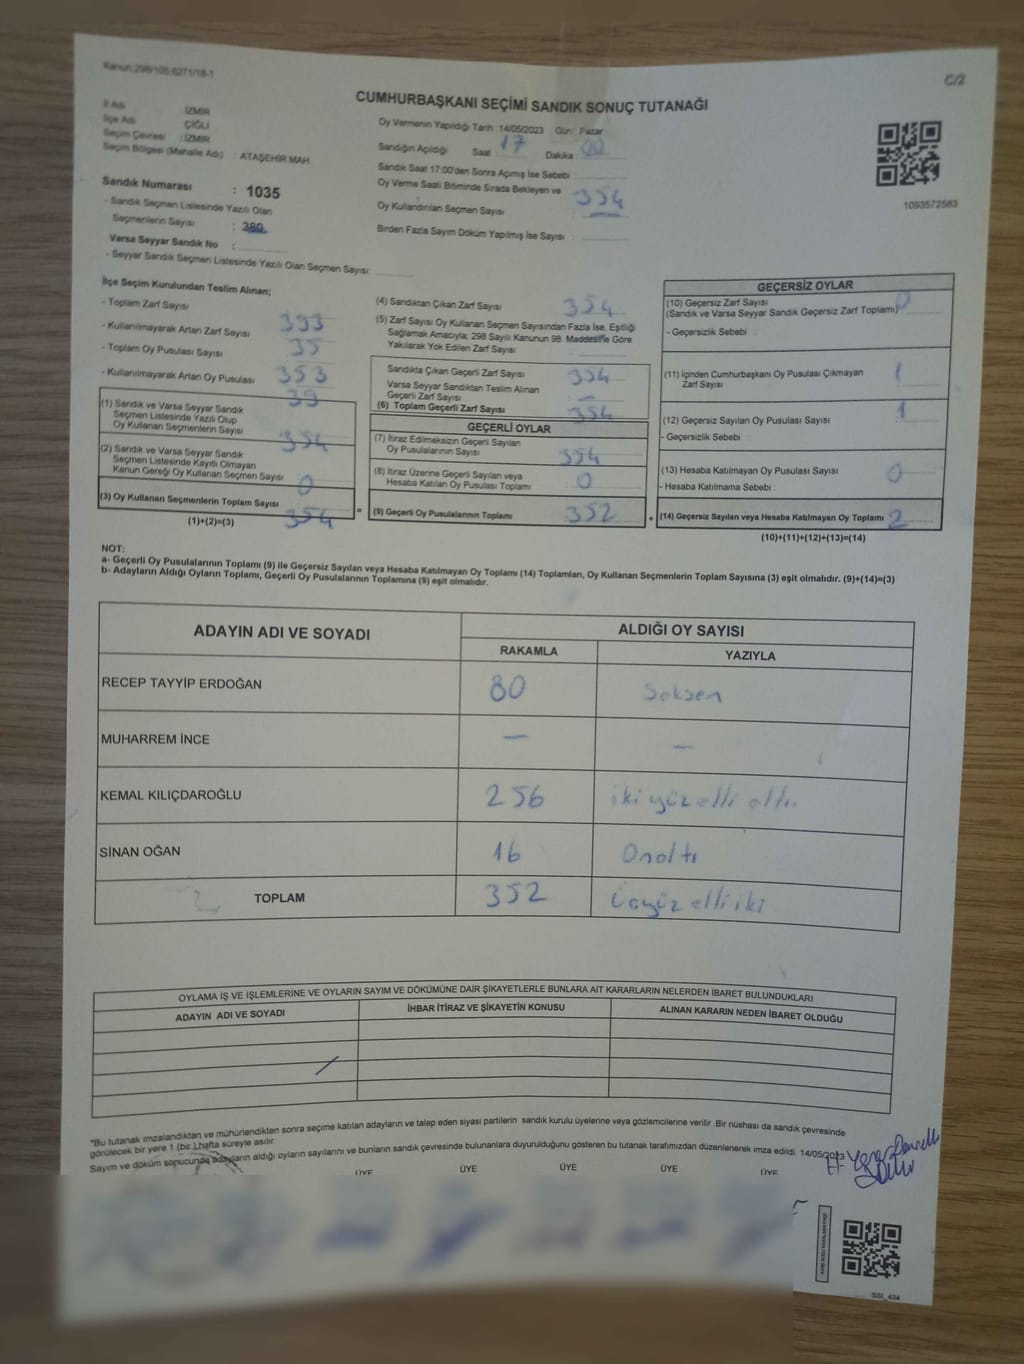 Kanun:298/105,6271/18-1
C/2
CUMHURBAŞKANI SEÇİMİ SANDIK SONUÇ TUTANAĞI
İl Adı : İZMİR
İlçe Adı : ÇİĞLİ
Seçim Çevresi : İZMİR
Seçim Bölgesi (Mahalle Adı) : ATAŞEHİR MAH.
Sandık Numarası : 1035
- Sandık Seçmen Listesinde Yazılı Olan
Seçmenlerin Sayısı : 380
Varsa Seyyar Sandık No :
- Seyyar Sandık Seçmen Listesinde Yazılı Olan Seçmen Sayısı:
Oy Vermenin Yapıldığı Tarih :14/05/2023 Gün : Pazar
Sandığın Açıldığı Saat 17 Dakika : 00
Sandık Saat 17:00'den Sonra Açımış İse Sebebi
Oy Verme Saati Bitiminde Sırada Bekleyen ve
Oy Kullandırılan Seçmen Sayısı : 354
Birden Fazla Sayım Döküm Yapılmış İse Sayısı :
1093572563
İlçe Seçim Kurulundan Teslim Alınan;
- Toplam Zarf Sayısı 393
- Kullanılmayarak Artan Zarf Sayısı 35
- Toplam Oy Pusulası Sayısı 353
- Kullanılmayarak Artan Oy Pusulası 39
(1) Sandık ve Varsa Seyyar Sandık
Seçmen Listesinde Yazılı Olup
Oy Kullanan Seçmenlerin Sayısı 354
(2) Sandık ve Varsa Seyyar Sandık
Seçmen Listesinde Kayıtlı Olmayan
Kanun Gereği Oy Kullanan Seçmen Sayısı 0
(3) Oy Kullanan Seçmenlerin Toplam Sayısı 354
(1)+(2)=(3)
(4) Sandıktan Çıkan Zarf Sayısı 354
(5) Zarf Sayısı Oy Kullanan Seçmen Sayısından Fazla İse, Eşitliği
Sağlamak Amacıyla; 298 Sayılı Kanunun 98. Maddesine Göre
Yakılarak Yok Edilen Zarf Sayısı :
Sandıkta Çıkan Geçerli Zarf Sayısı 354
Varsa Seyyar Sandıktan Teslim Alınan
Geçerli Zarf Sayısı : —
(6) Toplam Geçerli Zarf Sayısı 354
GEÇERLİ OYLAR
(7) İtiraz Edilmeksizin Geçerli Sayılan
Oy Pusulalarının Sayısı 354
(8) İtiraz Üzerine Geçerli Sayılan veya
Hesaba Katılan Oy Pusulası Toplamı : 0
= (9) Geçerli Oy Pusulalarının Toplamı : 352
GEÇERSİZ OYLAR
(10) Geçersiz Zarf Sayısı
(Sandık ve Varsa Seyyar Sandık Geçersiz Zarf Toplamı) 0
- Geçersizlik Sebebi :
(11) İçinden Cumhurbaşkanı Oy Pusulası Çıkmayan
Zarf Sayısı 1
(12) Geçersiz Sayılan Oy Pusulası Sayısı 1
- Geçersizlik Sebebi :
(13) Hesaba Katılmayan Oy Pusulası Sayısı 0
- Hesaba Katılmama Sebebi :
+ (14) Geçersiz Sayılan veya Hesaba Katılmayan Oy Toplamı 2
(10)+(11)+(12)+(13)=(14)
NOT:
a- Geçerli Oy Pusulalarının Toplamı (9) ile Geçersiz Sayılan veya Hesaba Katılmayan Oy Toplamı (14) Toplamları, Oy Kullanan Seçmenlerin Toplam Sayısına (3) eşit olmalıdır. (9)+(14)=(3)
b- Adayların Aldığı Oyların Toplamı, Geçerli Oy Pusulalarının Toplamına (9) eşit olmalıdır.
ADAYIN ADI VE SOYADI
ALDIĞI OY SAYISI
RAKAMLA YAZIYLA
RECEP TAYYİP ERDOĞAN 80 Seksen
MUHARREM İNCE — —
KEMAL KILIÇDAROĞLU 256 iki yüz elli altı
SİNAN OĞAN 16 Onaltı
TOPLAM 352 Üçyüz elli iki
OYLAMA İŞ VE İŞLEMLERİNE VE OYLARIN SAYIM VE DÖKÜMÜNE DAİR ŞİKAYETLERLE BUNLARA AİT KARARLARIN NELERDEN İBARET BULUNDUKLARI
ADAYIN ADI VE SOYADI İHBAR İTİRAZ VE ŞİKAYETİN KONUSU ALINAN KARARIN NEDEN İBARET OLDUĞU
"Bu tutanak imzalandıktan ve mühürlendikten sonra seçime katılan adayların ve talep eden siyasi partilerin sandık kurulu üyelerine veya gözlemcilerine verilir .Bir nüshası da sandık çevresinde
görülecek bir yere 1 (bir ),hafta süreyle asılır.
Sayım ve döküm sonucunda adayların aldığı oyların sayılarını ve bunların sandık çevresinde bulunanlara duyurulduğunu gösteren bu tutanak tarafımızdan düzenlenerek imza edildi. 14/05/2023
ÜYE ÜYE ÜYE ÜYE ÜYE
SSI_404